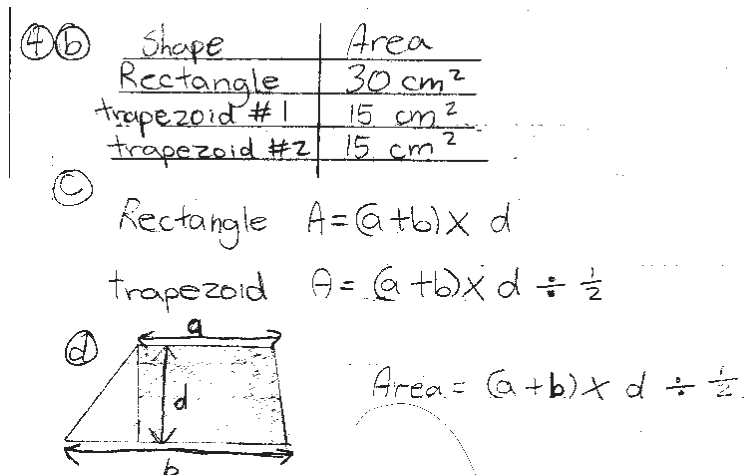 4 b Shape Area
Rectangle 30 cm²
trapezoid #1 15 cm²
trapezoid #2 15 cm²
c
Rectangle A=(a+b)× d
trapezoid A= (a+b)× d ÷ 1/2
d
a
d
b
Area = (a+b)× d ÷ 1/2